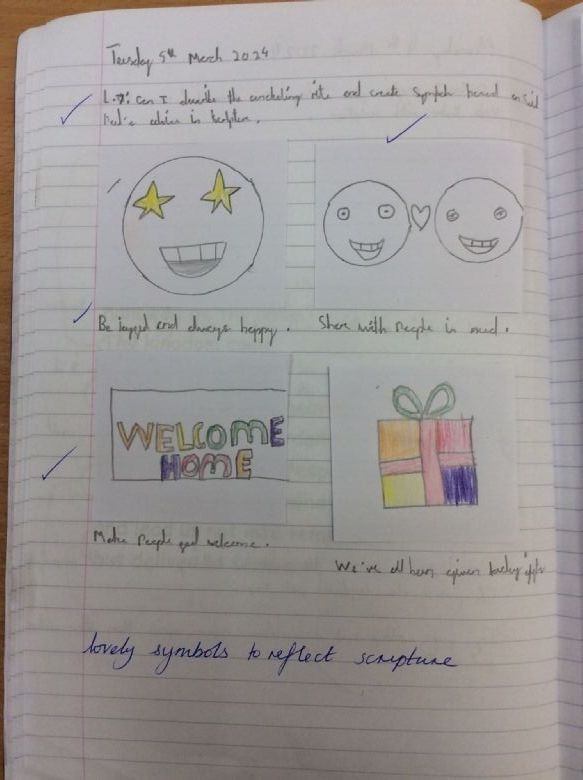 Tuesday 5th March 2024
L.I: Can I describe the anchaling rite and create symbols based on Saint
Paul's advice in scripture.
Be joyful and always happy.
Share with people in need.
WELCOME
HOME
Make people feel welcome.
We've all been given
lovely symbols to reflect scripture